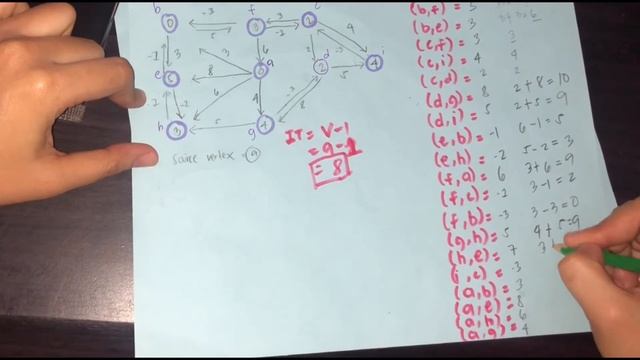 b -3 f 3 c
0 5 3 -2 2
-1 3 3 6 2 d -3 4 i
e 5 8 3 a 2 5 4
2 -2 6 4 -3 8
h 3 5 g 4
IT = V-1
= 9-1
= 8
Source vertex = a
(b,f) = 5
(b,e) = 3
(c,f) = 3 3
(c,i) = 4 4
(c,d) = 2 2
(d,g) = 8 2+8=10
(d,i) = 5 2+5=9
(e,b) = -1 6-1=5
(e,h) = -2 5-2=3
(f,a) = 6 3+6=9
(f,c) = -1 3-1=2
(f,b) = -3 3-3=0
(g,h) = 5 4+5=9
(h,e) = 7 3
(i,c) = -3
(a,b) = 3
(a,e) = 8
(a,h) = 6
(a,g) = 4